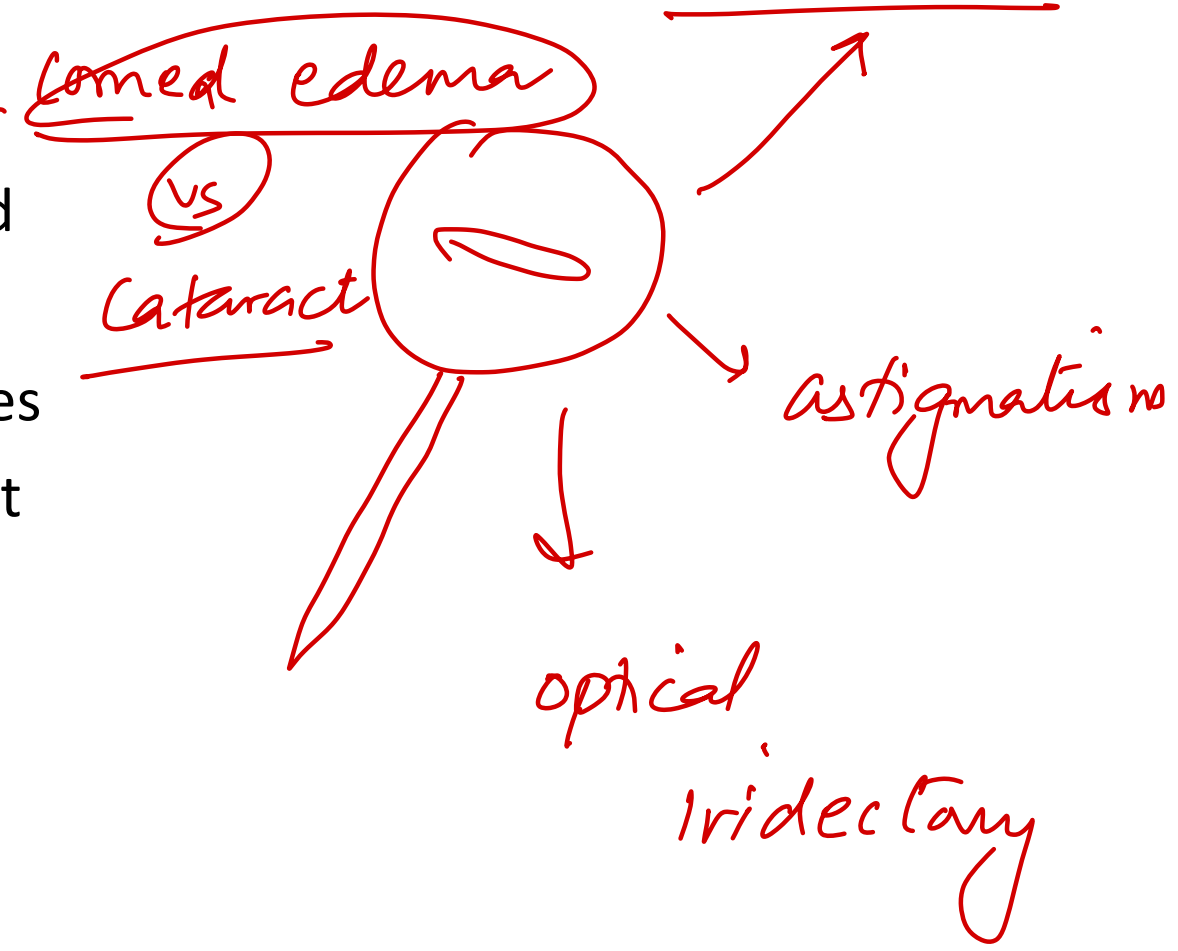 corneal edema
d
vs
cataract
es
astigmatism
t
optical
iridectomy